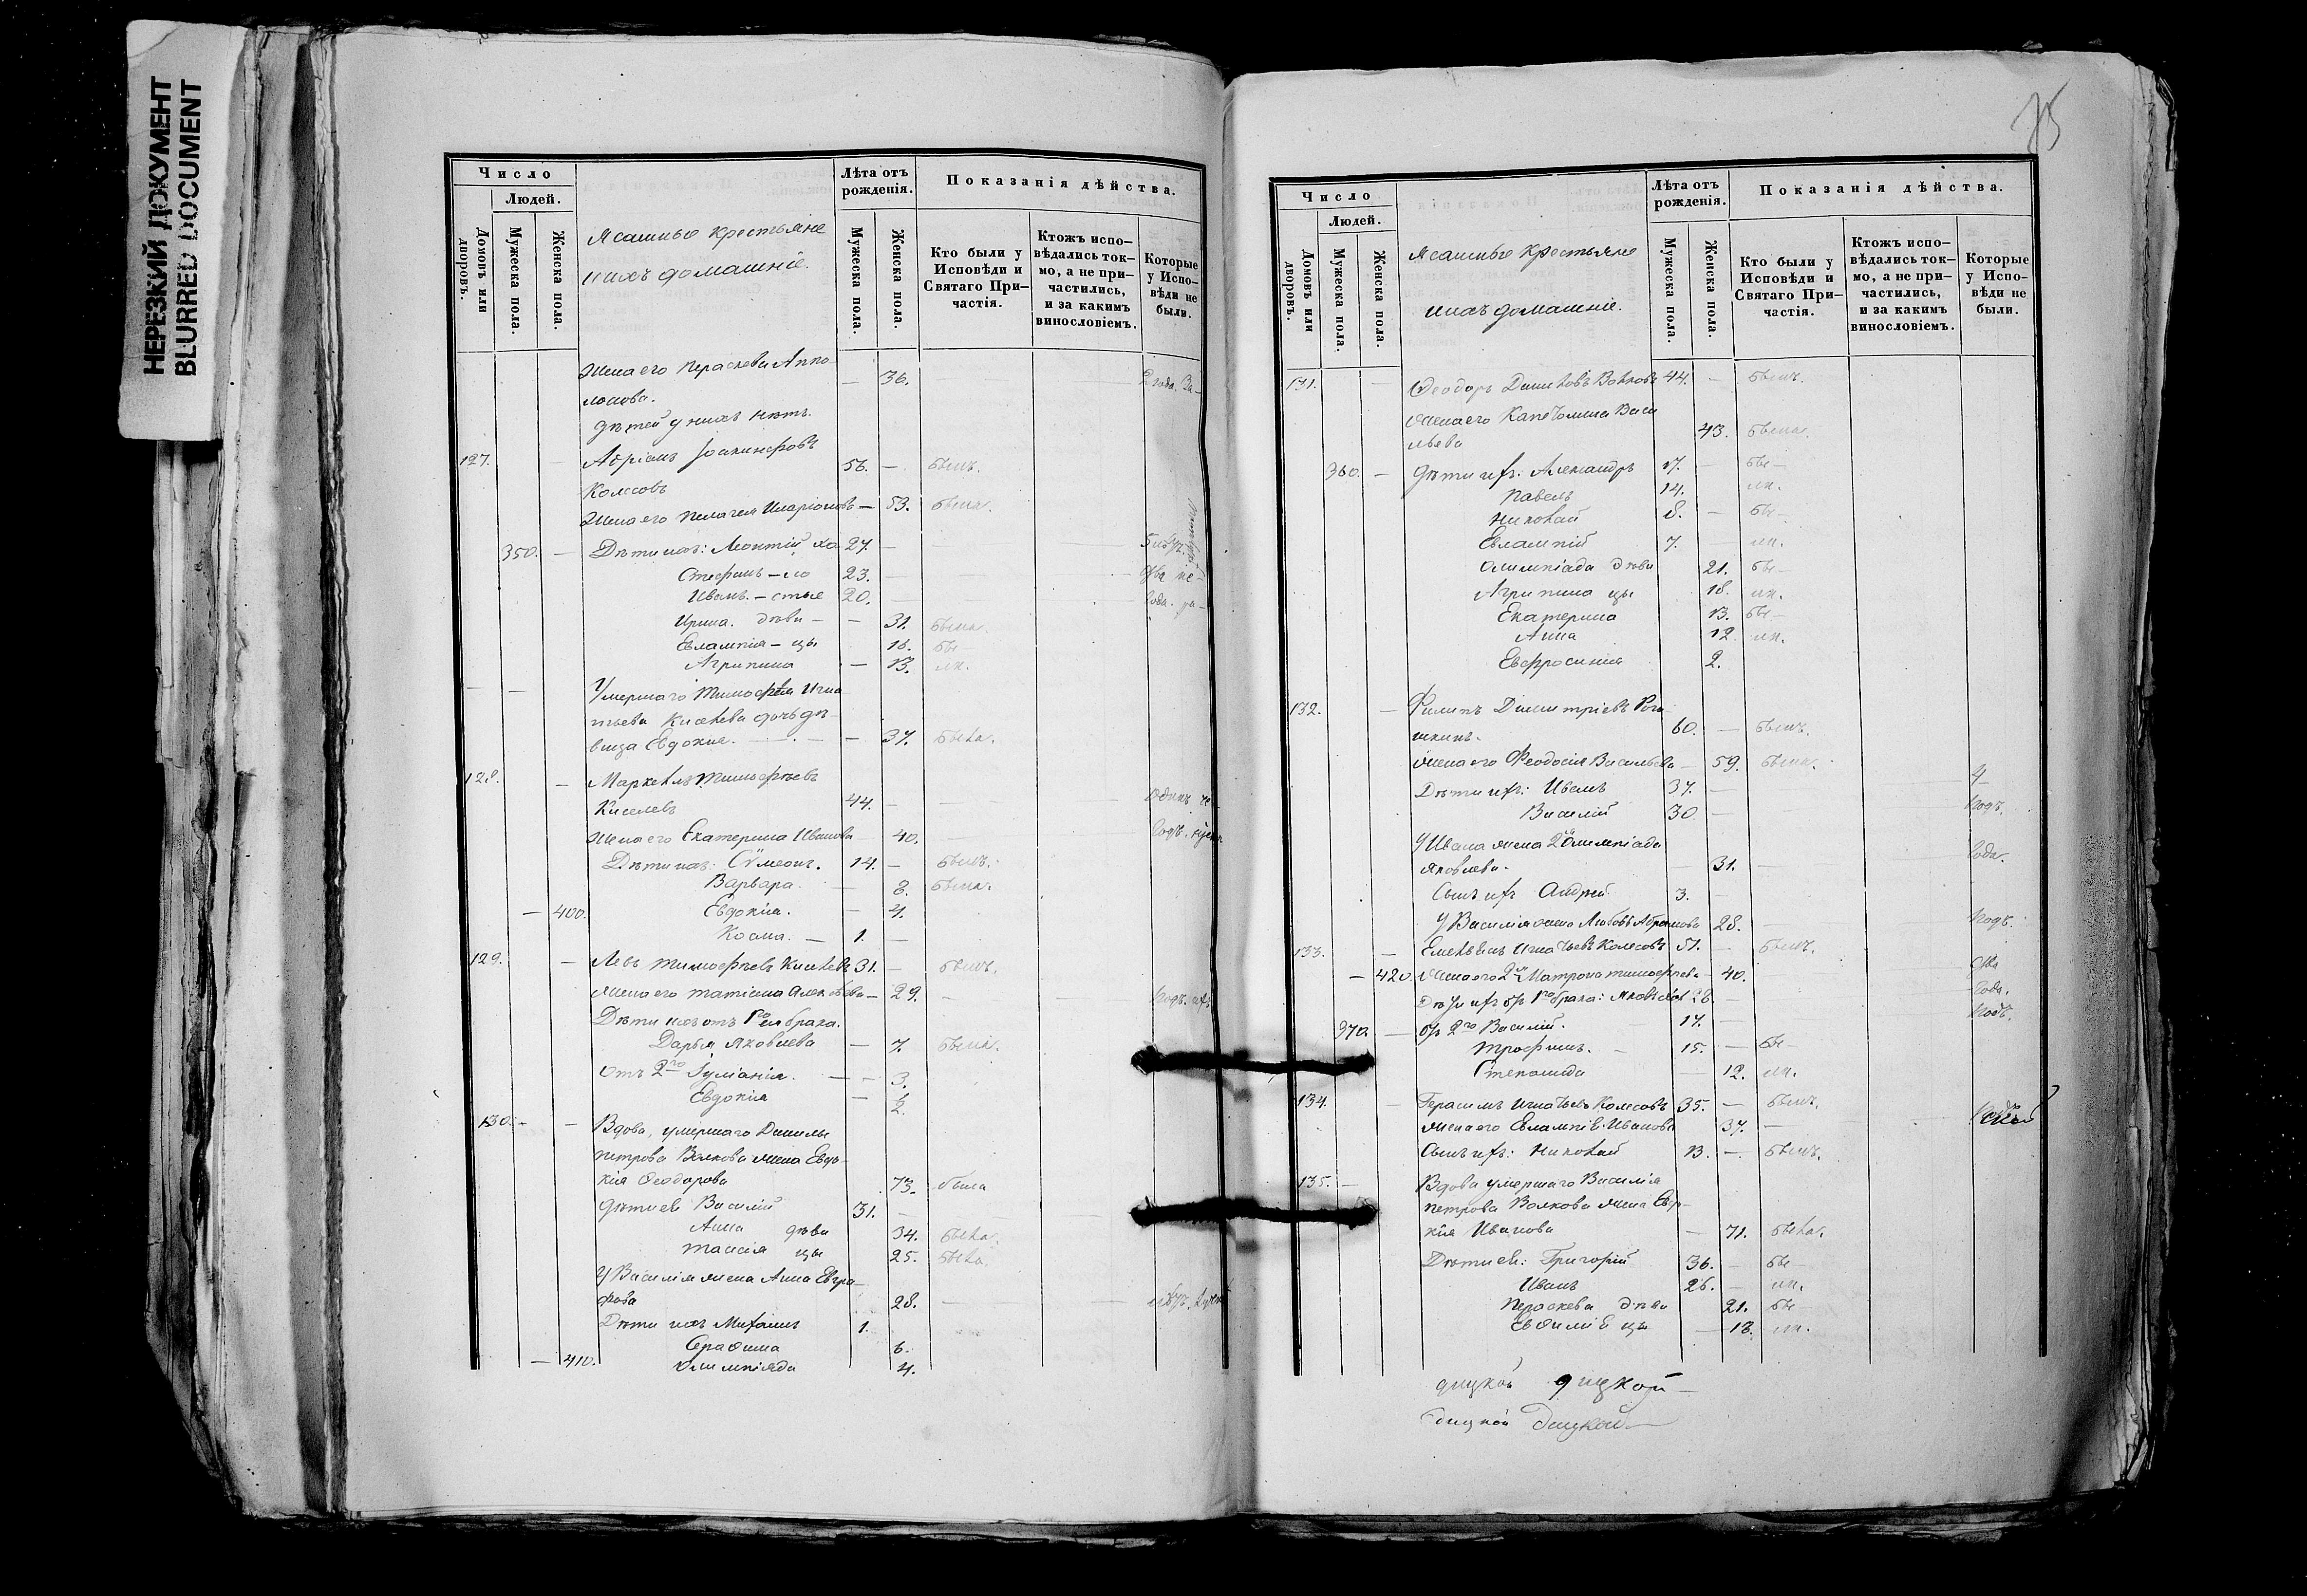 НЕРЕЗКИЙ ДОКУМЕНТ
BLURRED DOCUMENT
Число
Людей.
Домовъ или дворовъ.
Мужеска пола.
Женска пола.
Ясашные крестьяне
и ихъ домашніе.
Лѣта отъ рожденія.
Мужеска пола.
Женска пола.
Показанія дѣйства.
Кто были у Исповѣди и Святаго При-частія.
Ктожъ испо-вѣдались ток-мо, а не при-частились, и за какимъ винословіемъ.
Которые у Испо-вѣди не были.
Жена его Параскева Аппо-
лонова. — 36. 2 года.
дѣтей у нихъ нѣтъ.
127. Адріанъ Іоакинфовъ
Колесовъ 56. — былъ.
Жена его Пелагея Иларіонова — 53. была.
350. — Дѣти ихъ: Леонтій хо 27. —
Стефанъ — ло 23. — два
Иванъ. — стые 20. — года.
Ирина. дѣви — — 31. была.
Евлампія — цы 18. бы—
Агрипина — 13. ли.
Умершаго Тимофея Игна
тьева Киселева дочь дѣ-
вица Евдокия. — — 37. была.
128. — Маркеллъ Тимофѣевъ
Киселевъ 44. — одинъ
Жена его Екатерина Иванова 40. — годъ.
Дѣти ихъ: Сѵмеонъ. 14. — былъ.
Варвара. — 8. была.
— 400. Евдокія. — 4.
Косма. — 1. —
129. — Левъ Тимофѣевъ Киселевъ 31. — былъ.
Жена его Татіана Алексѣева — 29. — годъ.
Дѣти ихъ отъ 1го ея брака.
Дарья Яковлева — 7. была.
Отъ 2го Іуліанія. — — 3.
Евдокія — ½.
130. — — Вдова, умершаго Данилы
Петрова Волкова жена Евдо-
кія Ѳеодорова 73. была
Дѣти ея Василій 31. —
Анна дѣви 34. была.
Таисія цы 25. была.
У Василія жена Анна Евгра-
фова 28. —
Дѣти ихъ Михаилъ 1.
Серафима 6.
— 410. Олимпіада 4.
75
Число
Людей.
Домовъ или дворовъ.
Мужеска пола.
Женска пола.
Ясашные крестьяне
и ихъ домашніе.
Лѣта отъ рожденія.
Мужеска пола.
Женска пола.
Показанія дѣйства.
Кто были у Исповѣди и Святаго При-частія.
Ктожъ испо-вѣдались ток-мо, а не при-частились, и за какимъ винословіемъ.
Которые у Испо-вѣди не были.
131. — Ѳеодоръ Даниловъ Волковъ 44. — былъ.
Жена его Капетолина Васи
льева 43. была.
360. — Дѣти ихъ: Александръ 17. — бы—
Павелъ 14. ли.
Николай 8. — бы—
Евлампій 7. — ли.
Олимпіада дѣви 21. бы—
Агрипина цы 18. ли.
Екатерина 13. бы—
Анна 12. ли.
Евфросинія 2.
132. — Филипъ Димитріевъ
60. — былъ.
Жена его Ѳеодосія Васильева — 59. была.
Дѣти ихъ: Иванъ 37. — 4
Василій 30. — годъ.
У Ивана жена 2я Олимпіада
Яковлева. 31. — года.
Сынъ ихъ Андрей 3. —
У Василія жена Любовь Абрамова 28. — годъ.
133. — Емельянъ Игнатьевъ Колесовъ 51. — былъ.
— 420. Жена его 2я Матрона Тимофѣева — 40. два
Дѣти ихъ отъ 1го брака: Яковъ 28. — года.
370. — отъ 2го Василій. 17. — годъ.
Трофимъ. — 15. — бы—
Степанида — 12. ли.
134. — Герасимъ Игнатьевъ Колесовъ 35. — былъ.
Жена его Евлампія Иванова 37. —
Сынъ ихъ: Николай 13. — былъ.
135. — Вдова умершаго Василія
Петрова Волкова жена Евдо-
кія Иванова — 71. была.
Дѣти ея: Григорій 36. — бы—
Иванъ 26. — ли.
Параскева дѣви 21. бы—
Евѳимія цы — 18. ли.